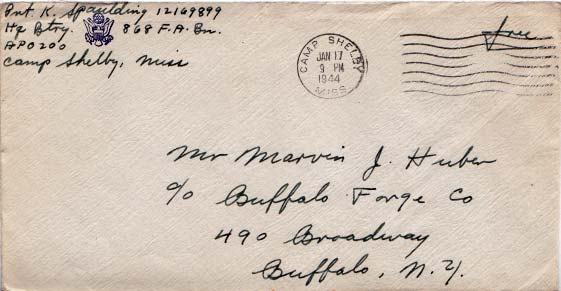 Pvt. K. Spaulding 12169899
Hq Btry. 868 F.A. Bn.
APO 200
Camp Shelby, Miss
Free
CAMP SHELBY
JAN 17
9 PM
1944
MISS.
Mr Marvin J. Huber
c/o Buffalo Forge Co
490 Broadway
Buffalo, N.Y.